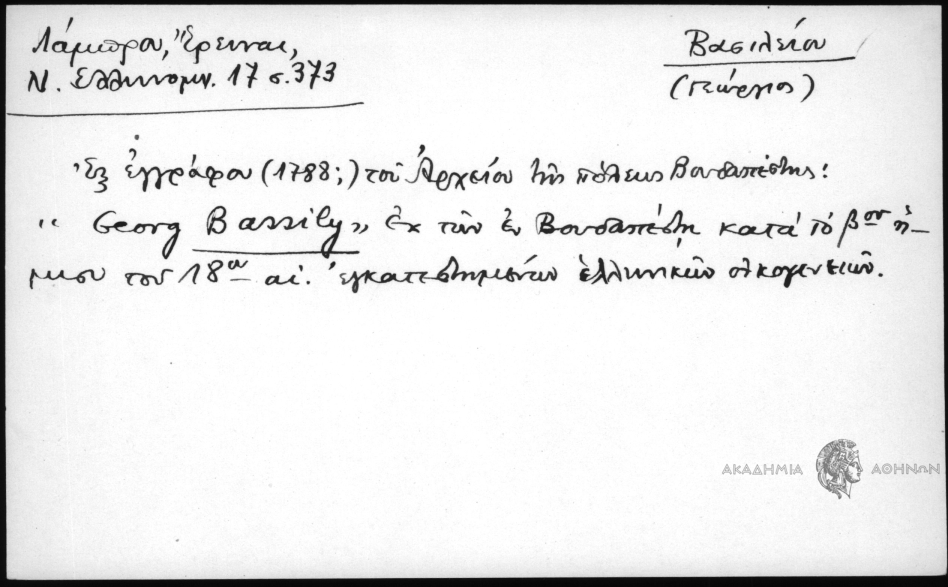 Λάμπρου, Ἔρευναι,
Ν. Ἑλληνομν. 17 σ. 373
Βασιλείου
(Γεώργιος)
Ἐξ ἐγγράφου (1788;) τοῦ Ἀρχείου τῆς πόλεως Βουδαπέστης:
“ Georg Bassily „ ἐκ τῶν ἐν Βουδαπέστῃ κατὰ τὸ βον ἥ-
μισυ τοῦ 18ου αἰ. ἐγκατεστημένων ἑλληνικῶν οἰκογενειῶν.
ΑΚΑΔΗΜΙΑ ΑΘΗΝΩΝ